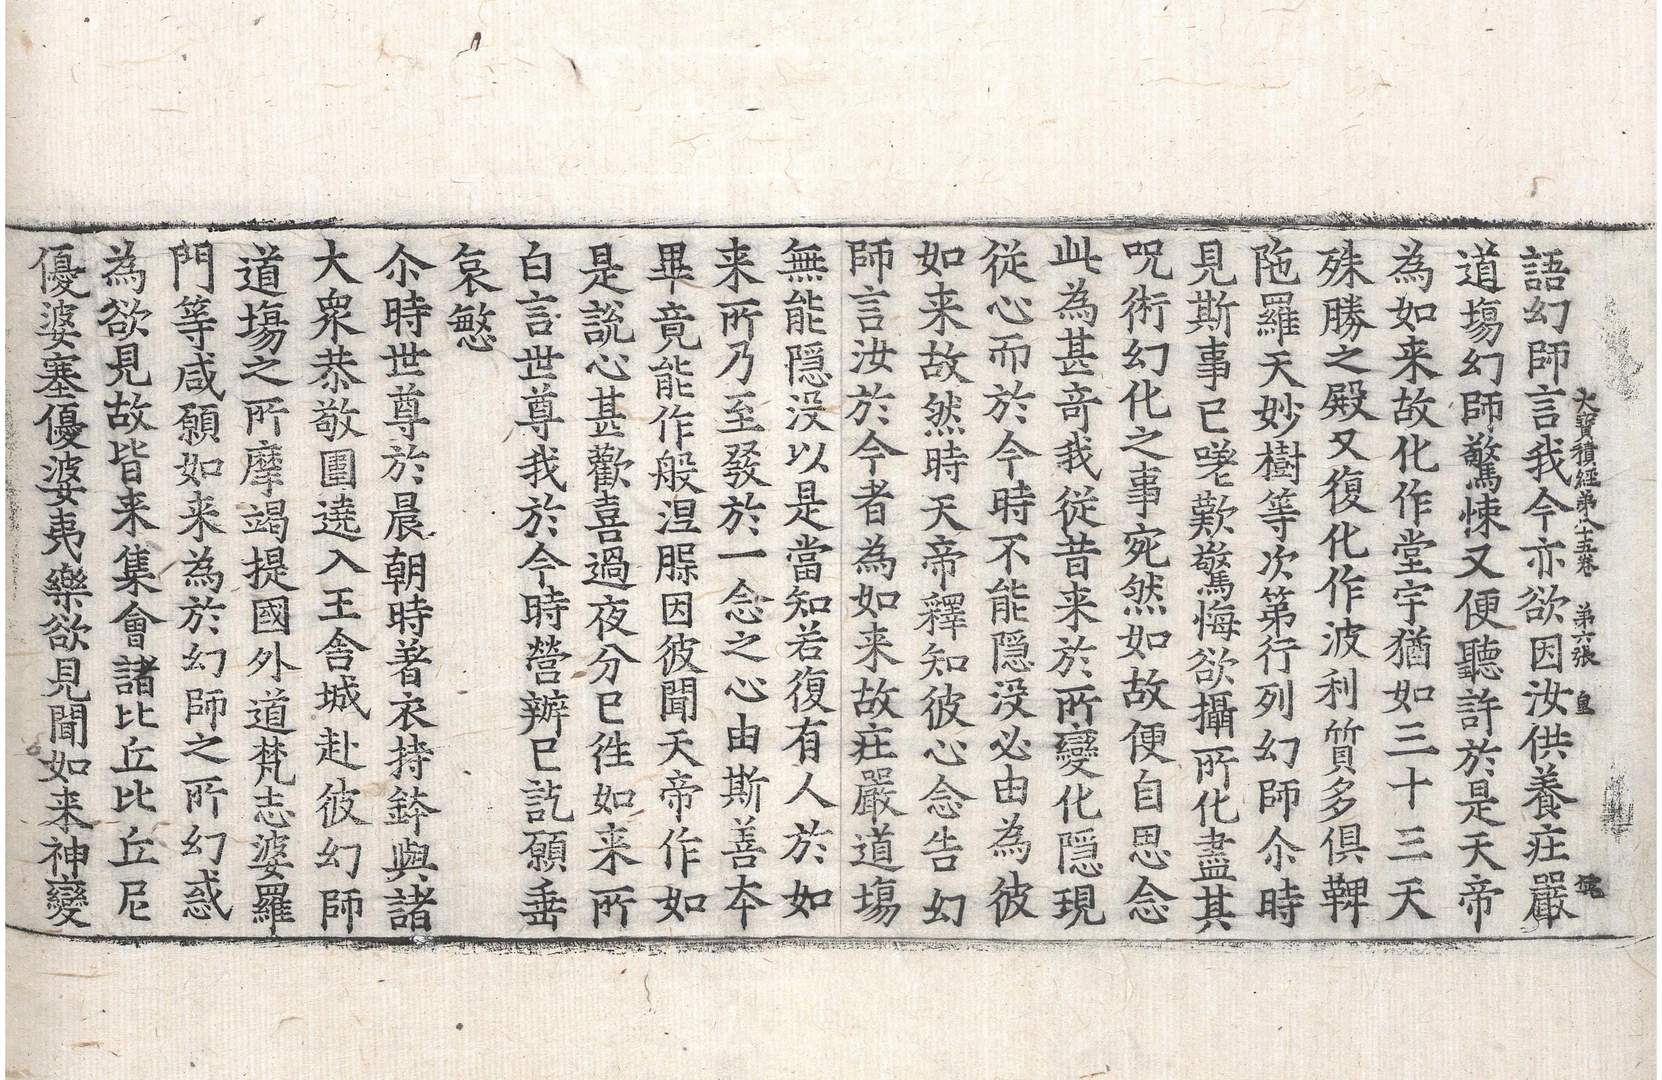 大寶積經第八十五卷 第六張 皇
語幻師言我今亦欲因汝供養莊嚴
道塲幻師驚悚又便聽許於是天帝
為如来故化作堂宇猶如三十三天
殊勝之殿又復化作波利質多俱鞞
陁羅天妙樹等次第行列幻師尒時
見斯事已嗟歎驚悔欲攝所化盡其
呪術幻化之事宛然如故便自思念
此為甚奇我從昔来於所變化隱現
從心而於今時不能隱没必由為彼
如来故然時天帝釋知彼心念告幻
師言汝於今者為如来故莊嚴道塲
無能隱没以是當知若復有人於如
来所乃至發於一念之心由斯善本
畢竟能作般涅槃因彼聞天帝作如
是說心甚歡喜過夜分已往如来所
白言世尊我於今時營辦已訖願垂
哀愍
尒時世尊於晨朝時著衣持鉢與諸
大衆恭敬圍遶入王舍城赴彼幻師
道塲之所摩竭提國外道梵志婆羅
門等咸願如来為於幻師之所幻惑
為欲見故皆来集會諸比丘比丘尼
優婆塞優婆夷樂欲見聞如来神變